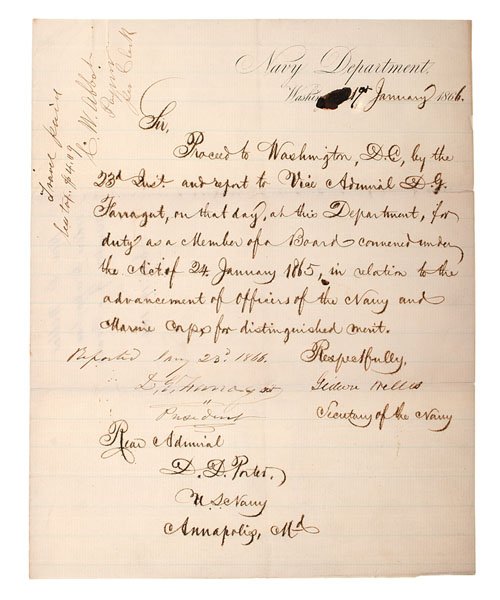 Navy Department.
17th January 1866.
Sir,
Proceed to Washington, D.C, by the
23d Inst. and report to Vice Admiral D. G.
Farragut, on that day, at this Department, for
duty as a Member of a Board convened under
the Act of 24 January 1865, in relation to the
advancement of Officers of the Navy and
Marine Corps for distinguished merit.
Respectfully,
Gideon Welles
Secretary of the Navy
Reported Jany 23d. 1866.
D. G. Farragut
President
Rear Admiral
D. D. Porter,
U. S. Navy
Annapolis, Md
Travel paid
$4.09
C. W. Abbot